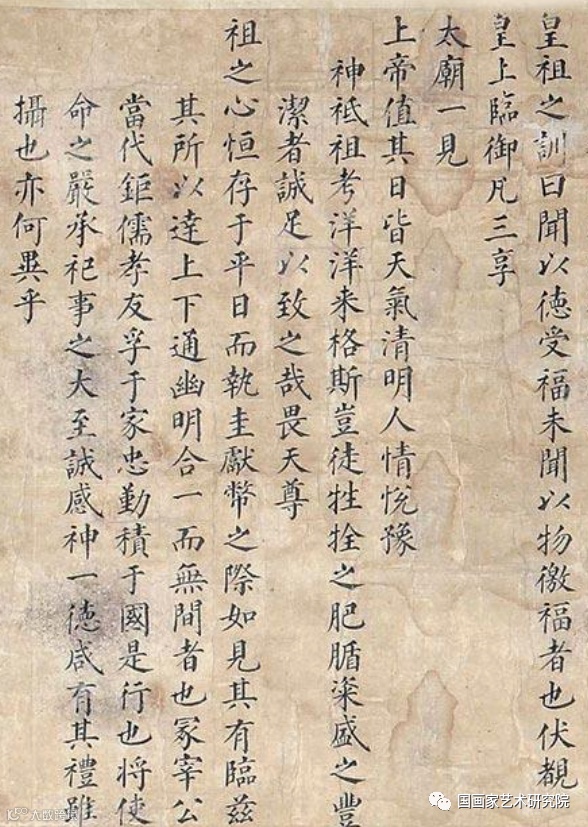 皇祖之訓曰聞以德受福未聞以物徼福者也伏覩
皇上臨御凡三享
太廟一見
上帝值其日皆天氣清明人情悅豫
神祇祖考洋洋来格斯豈徒牲牷之肥腯粢盛之豐
潔者誠足以致之哉畏天尊
祖之心恒存于平日而執圭獻幣之際如見其有臨兹
其所以達上下通幽明合一而無間者也冢宰公
當代鉅儒孝友孚于家忠勤積于國是行也將使
命之嚴承祀事之大至誠感神一德咸有其禮雖
攝也亦何異乎
国画家艺术研究院